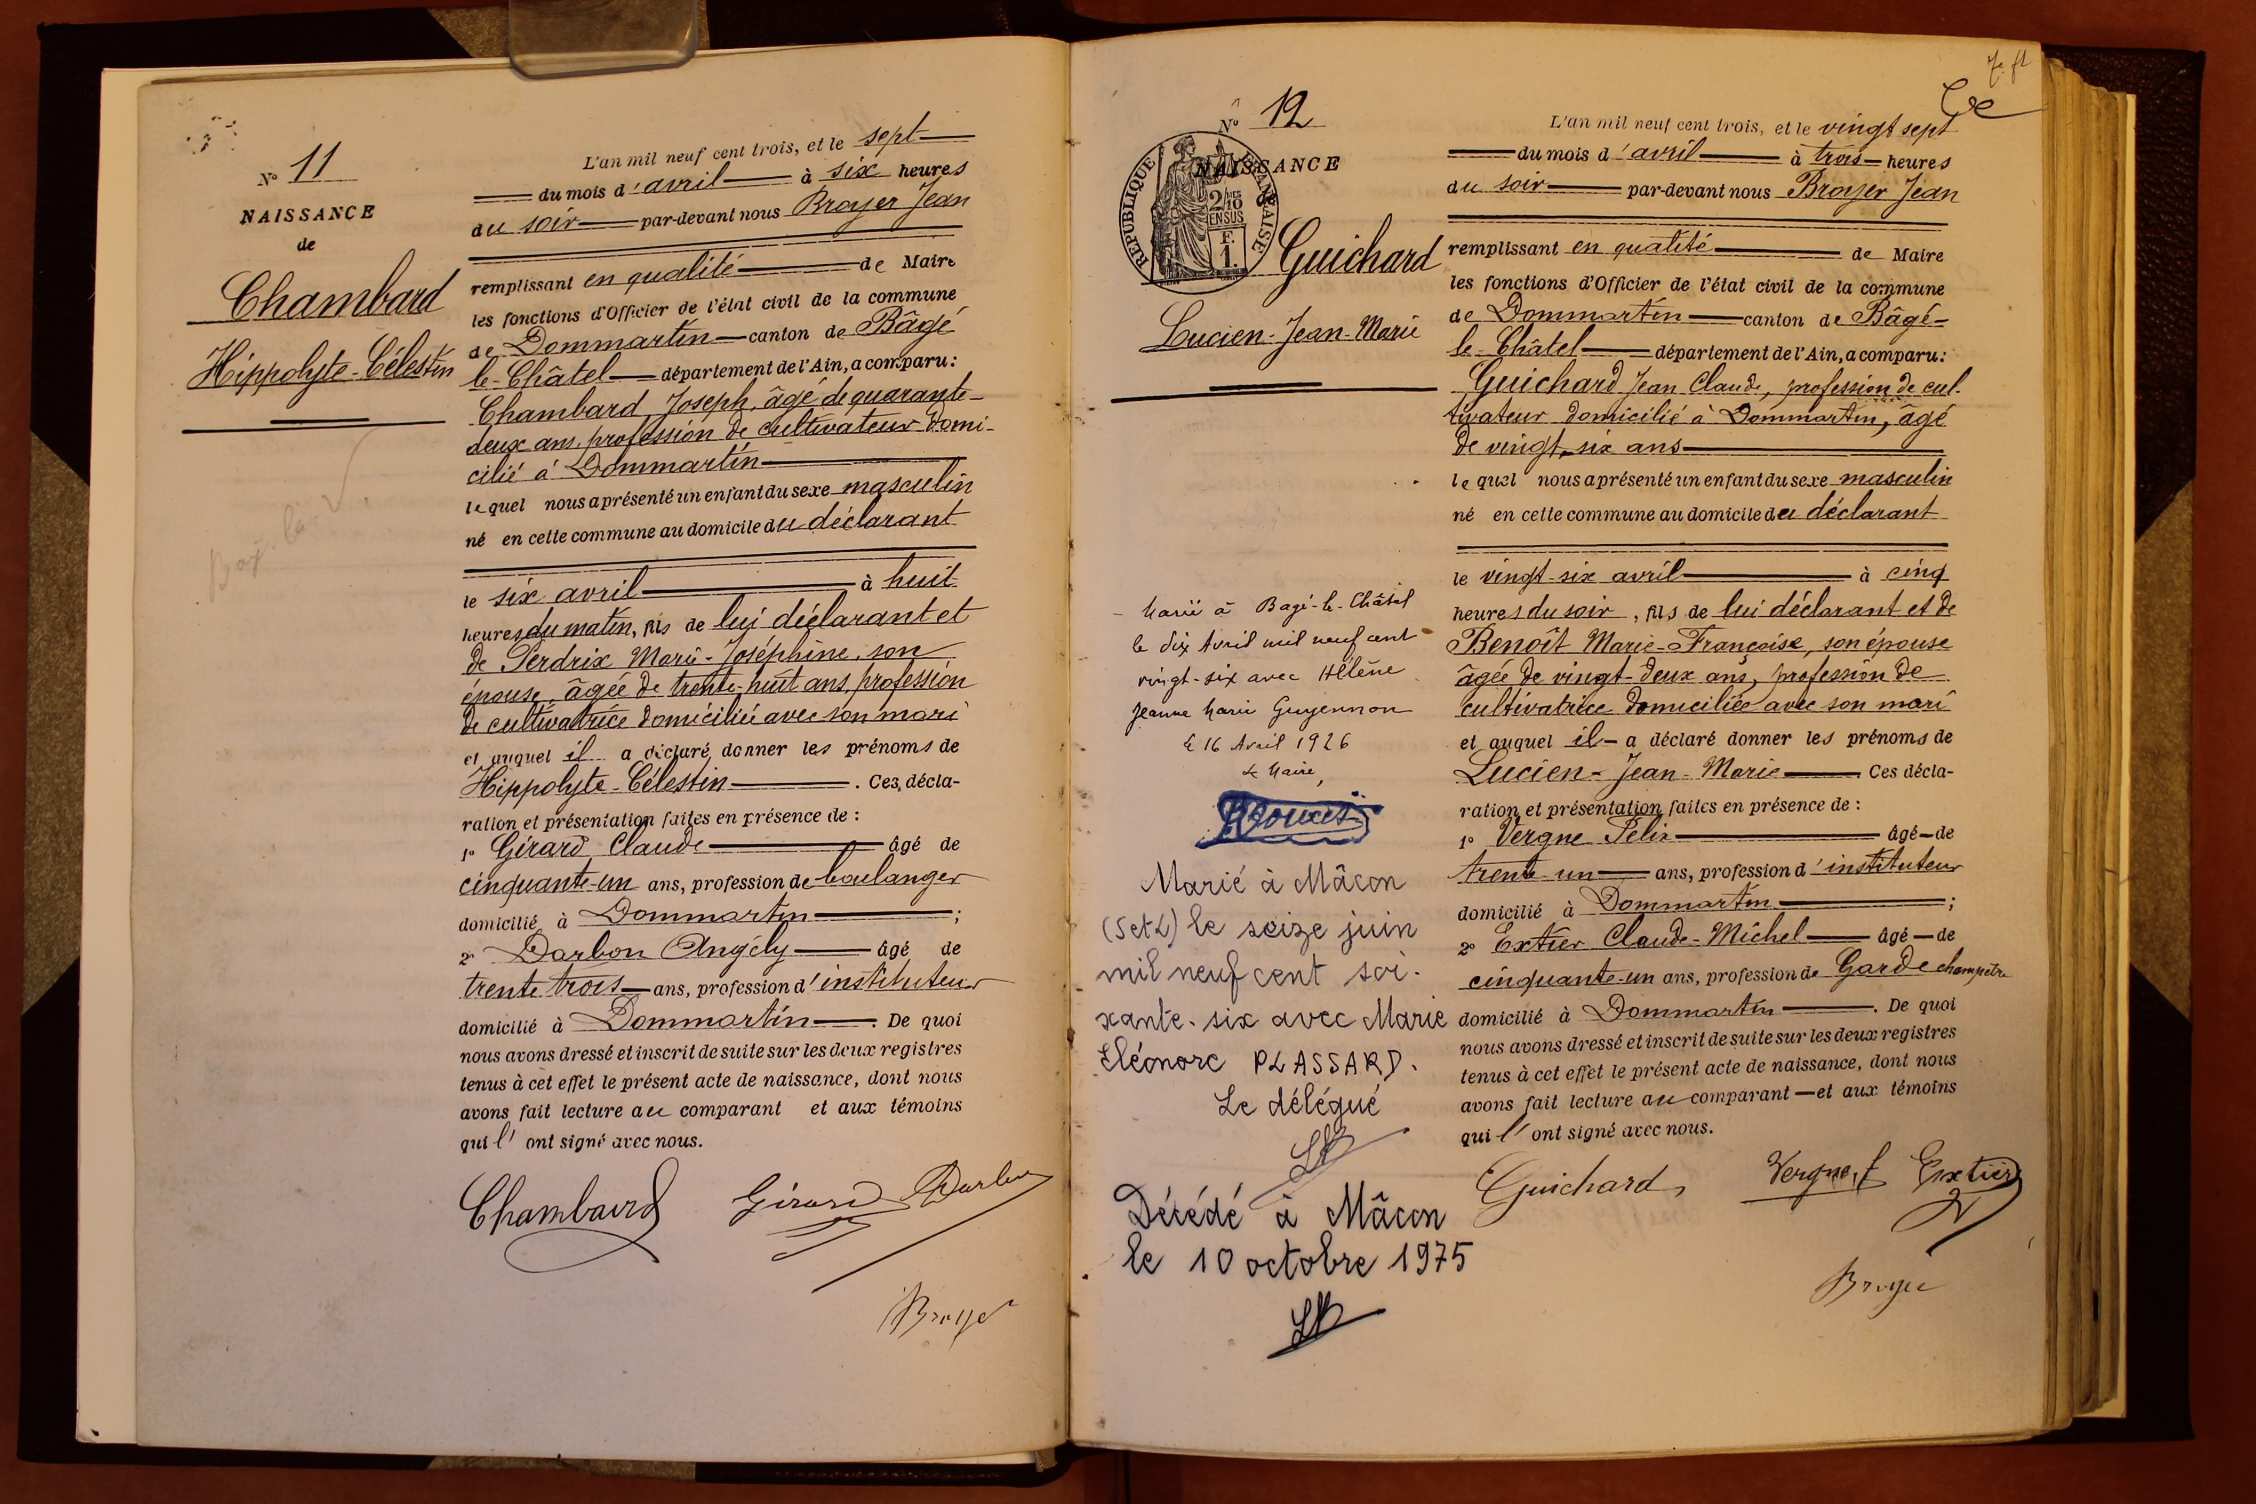 N° 11
NAISSANCE
de
Chambard
Hippolyte-Célestin
L'an mil neuf cent trois, et le sept
du mois d'avril à six heures
du soir par-devant nous Broyer Jean
remplissant en qualité de Maire
les fonctions d'Officier de l'état civil de la commune
de Dommartin canton de Bâgé
le-Châtel département de l'Ain, a comparu:
Chambard, Joseph, âgé de quarante-
deux ans, profession de cultivateur domi-
cilié à Dommartin
lequel nous a présenté un enfant du sexe masculin
né en cette commune au domicile du déclarant
le six avril à huit
heures du matin, fils de lui déclarant et
de Perdrix Marie-Joséphine, son
épouse, âgée de trente-huit ans, profession
de cultivatrice domiciliée avec son mari
et auquel il a déclaré donner les prénoms de
Hippolyte-Célestin . Ces décla-
ration et présentation faites en présence de :
1° Girard Claude âgé de
cinquante-un ans, profession de boulanger
domicilié à Dommartin ;
2° Darbon Angély âgé de
trente trois ans, profession d'instituteur
domicilié à Dommartin . De quoi
nous avons dressé et inscrit de suite sur les deux registres
tenus à cet effet le présent acte de naissance, dont nous
avons fait lecture au comparant et aux témoins
qui l'ont signé avec nous.
Chambard Girard Darbon
Broyer
N° 12
NAISSANCE
de
REPUBLIQUE FRANÇAISE
2/10 EN SUS
F. 1.
Guichard
Lucien-Jean-Marie
Marié à Bagé-le-Châtel
le dix Avril mil neuf cent
vingt-six avec Hélène
Jeanne Marie Guyennon
le 16 Avril 1926
Le Maire,
Marié à Mâcon
(S et L) le seize juin
mil neuf cent soi-
xante-six avec Marie
Eléonore PLASSARD.
Le délégué
Décédé à Mâcon
le 10 octobre 1975
L'an mil neuf cent trois, et le vingt sept
du mois d'avril à trois heures
du soir par-devant nous Broyer Jean
remplissant en qualité de Maire
les fonctions d'Officier de l'état civil de la commune
de Dommartin canton de Bâgé-
le-Châtel département de l'Ain, a comparu:
Guichard Jean Claude, profession de cul-
tivateur domicilié à Dommartin, âgé
de vingt-six ans
lequel nous a présenté un enfant du sexe masculin
né en cette commune au domicile du déclarant
le vingt-six avril à cinq
heures du soir, fils de lui déclarant et de
Benoît Marie-Françoise, son épouse
âgée de vingt-deux ans, profession de
cultivatrice domiciliée avec son mari
et auquel il a déclaré donner les prénoms de
Lucien-Jean-Marie Ces décla-
ration et présentation faites en présence de :
1° Vergne Félix âgé de
trente-un ans, profession d'instituteur
domicilié à Dommartin ;
2° Extier Claude-Michel âgé de
cinquante-un ans, profession de Garde champêtre
domicilié à Dommartin . De quoi
nous avons dressé et inscrit de suite sur les deux registres
tenus à cet effet le présent acte de naissance, dont nous
avons fait lecture au comparant et aux témoins
qui l'ont signé avec nous.
Guichard Vergne, f Extier
Broyer